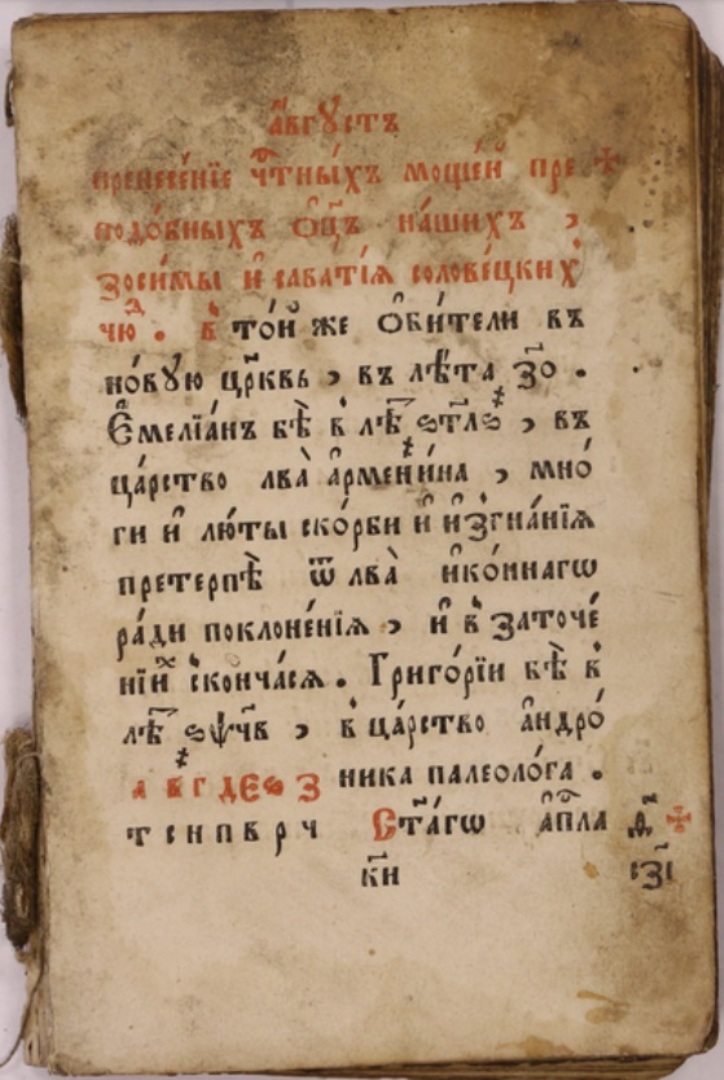 а҆́вгꙋстъ
пренесе́нїе чⷭ҇тны́хъ моще́й пре
подо́бныхъ ѻ҆ц҃ъ на́шихъ ,
зоси́мы и҆ саватїѧ солове́цкихъ
чюⷣ . в̾ то́й же ѻ҆би́тели въ
но́вꙋю цр҃квь , въ лѣ́та ҂з҃о .
Е҆мелїа́нъ бѣ̀ в̾ лѣ҃ ҂ѕ҃тлѕ , въ
ца́рство льва̀ а҆рмени́на , мно́
ги и҆ лю́ты ско́рби и҆ и҆згна́нїѧ
претерпѣ̀ ѿ лва̀ и҆ко́ннагѡ
ра́ди поклоне́нїѧ , и҆ в̾ заточе́
нїи҆ сконча́сѧ . Григо́рїи бѣ̀ в̾
лѣ҃ ҂ѕѱч҃в , в̾ ца́рство а҆ндро́
а в г д є ѕ з ника палеоло́га .
т с н п в р ч Ст҃а́гѡ а҆пⷭ҇ла ѳ҃
к҃и ѕз҃і